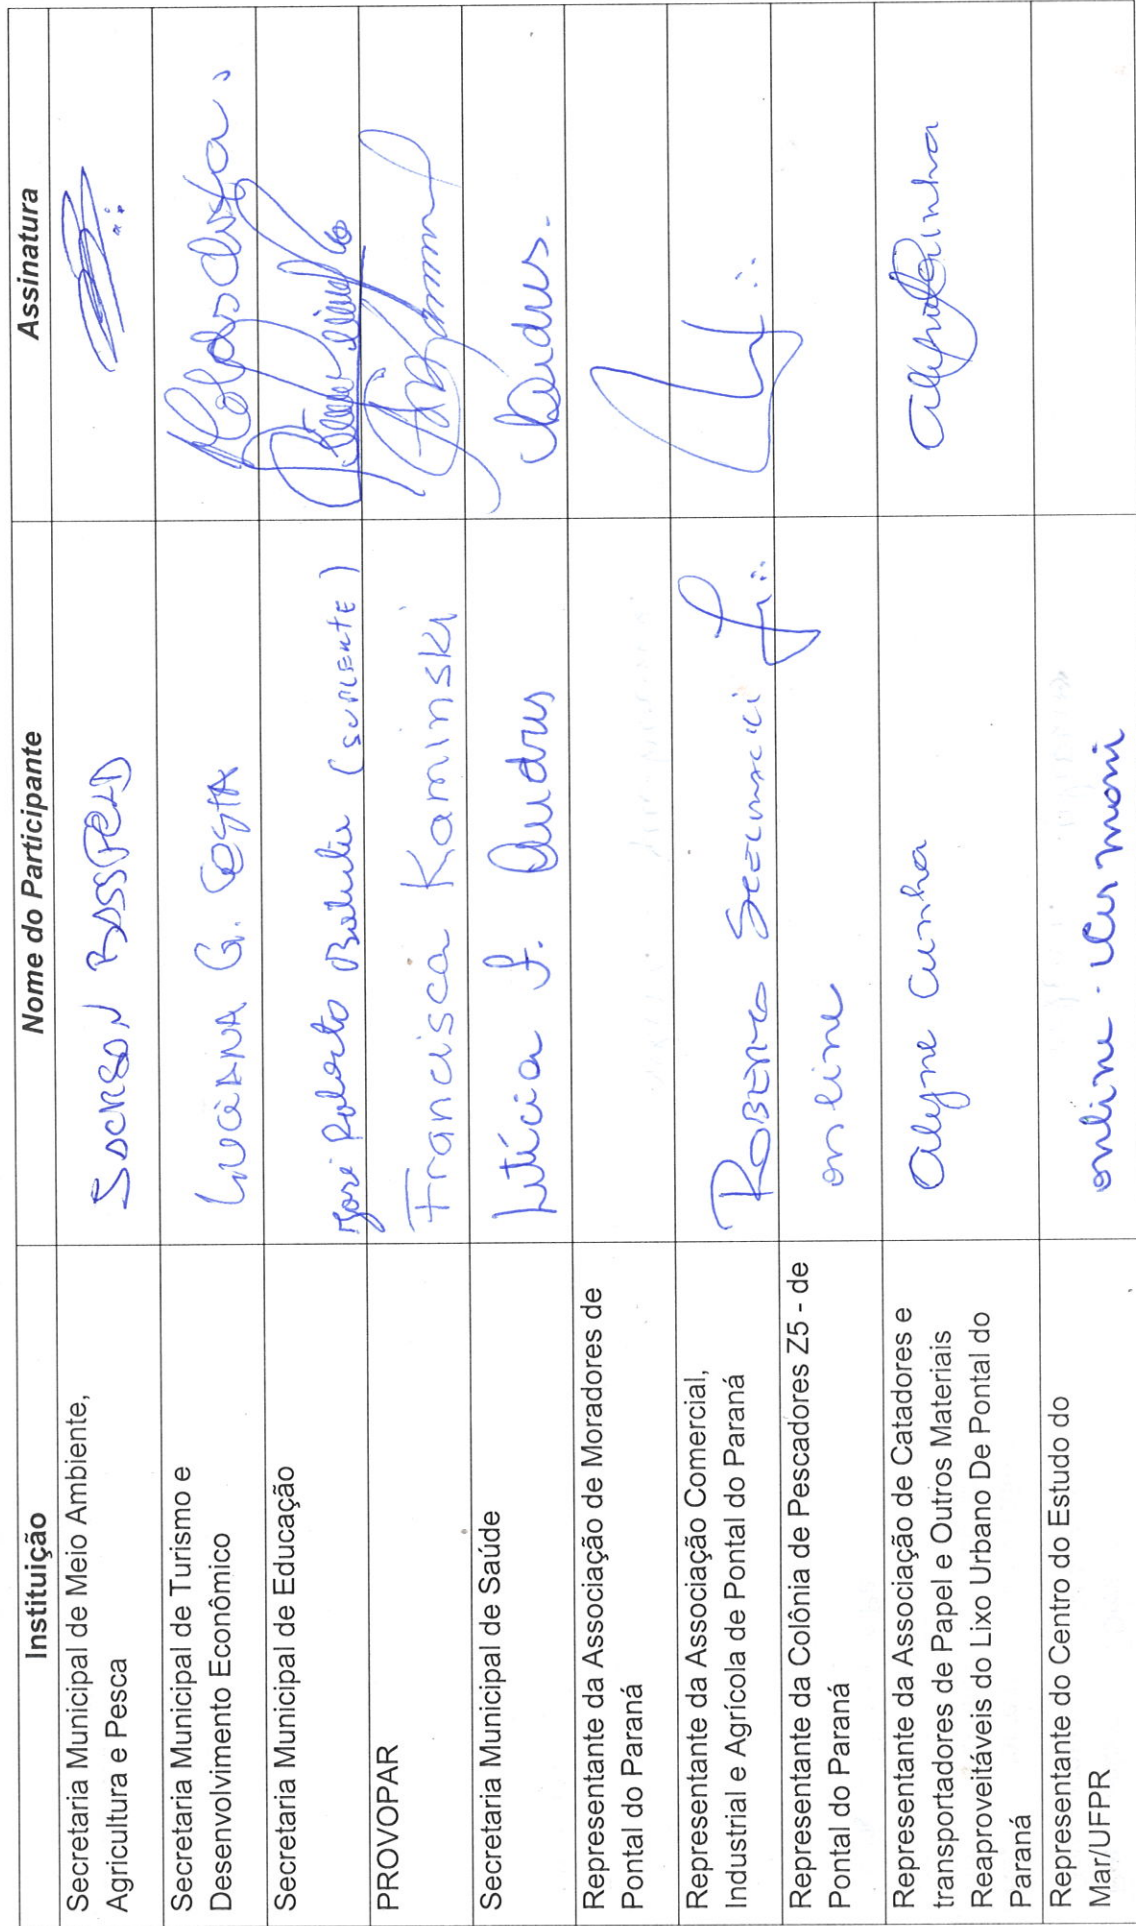 Instituição Nome do Participante Assinatura
Secretaria Municipal de Meio Ambiente,
Agricultura e Pesca
Secretaria Municipal de Turismo e
Desenvolvimento Econômico
LUCIANA G. COSTA
Secretaria Municipal de Educação
José Roberto (SUPLENTE)
PROVOPAR
Francisca Kaminski
Secretaria Municipal de Saúde
Letícia S. Andrus
Andrus.
Representante da Associação de Moradores de
Pontal do Paraná
Representante da Associação Comercial,
Industrial e Agrícola de Pontal do Paraná
ROBERTO
Representante da Colônia de Pescadores Z5 - de
Pontal do Paraná
on line
Representante da Associação de Catadores e
transportadores de Papel e Outros Materiais
Reaproveitáveis do Lixo Urbano De Pontal do
Paraná
Alyne Cunha
Representante do Centro do Estudo do
Mar/UFPR
online -